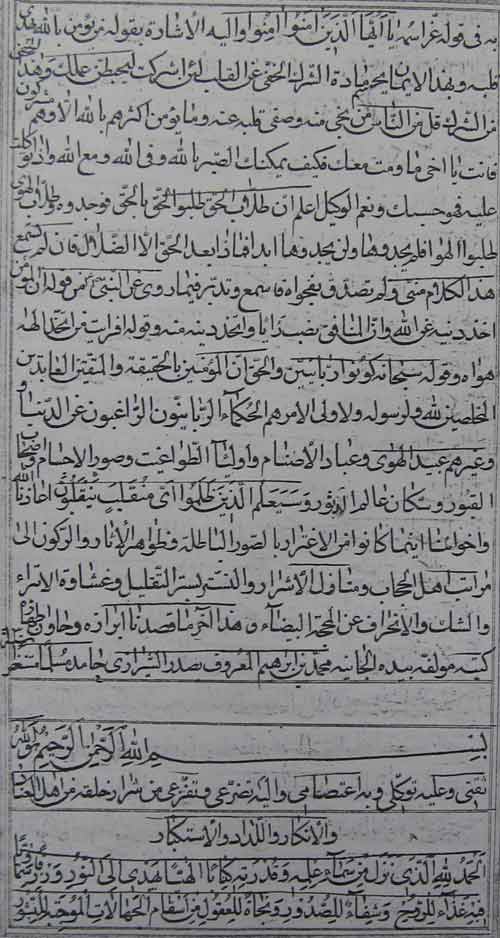 به فى قوله عز اسمه يا ايها الذين آمنوا آمنوا واليه الاشارة بقوله من يؤمن بالله يهد
قلبه وبهذا الايمان
من الشرك قل من الناس من ينجى منه وصفى قلبه عنه وما يؤمن اكثرهم بالله الا وهم مشركون
فانت يا اخى ما دمت معك فكيف يمكنك الصبر بالله وفى الله ومع الله
عليه فهو حسبك ونعم الوكيل اعلم ان طلاب الحق طلبوا الحق بالحق فوجدوه وطلاب الهوى
طلبوا الهوا فلم يجدوها ولن يجدوها ابدا فماذا بعد الحق الا الضلال فان لم تسمع
هذا الكلام منى ولم تصدق بفحواه فاسمع وتدبر فيما روى عن النبى من قوله ان المؤمن
اخذ دينه عن الله وان المنافق نصب رايا واتخذ دينه منه وقوله افرايت من اتخذ الهه
هواه وقوله سبحانه كونوا ربانيين والحق ان المؤمنين بالحقيقة والمتقين العابدين
المخلصين لله ولرسوله ولاولى الامر هم الحكماء الربانيون الراغبون عن الدنيا
وغيرهم عبيد الهوى وعباد الاصنام واولياء الطواغيت وصور الاجسام واصحاب
القبور وسكان عالم الدثور وسيعلم الذين ظلموا اى منقلب ينقلبون اعاذنا الله
واخواننا اينما كانوا من الاغترار بالصور الباطلة وظواهر الآثار والركون الى
مراتب اهل الحجاب ومنازل الاشرار والتستر بستر التقليل وغشاوة الامتراء
والشك والانحراف عن المحجة البيضاء وهذا آخر ما قصدنا ايراده وحاولنا
كتبه مؤلفه بيده الجانية محمد بن ابرهيم المعروف بصدر الشيرازى حامدا مصليا مستغفرا
بسم الله الرحمن الرحيم
ثقتى وعليه توكلى وبه اعتصامى واليه تضرعى وتفزعى من شرار خلقه من اهل العناد
والانكار واللداد والاستكبار
الحمد لله الذى نزل من سماء علمه وقدرته كتابا الهيا يهدى الى النور
فيه غذاء للروح وشفاء للصدور ونجاة للعقول من اسقام الجهالات الموجبة للثبور